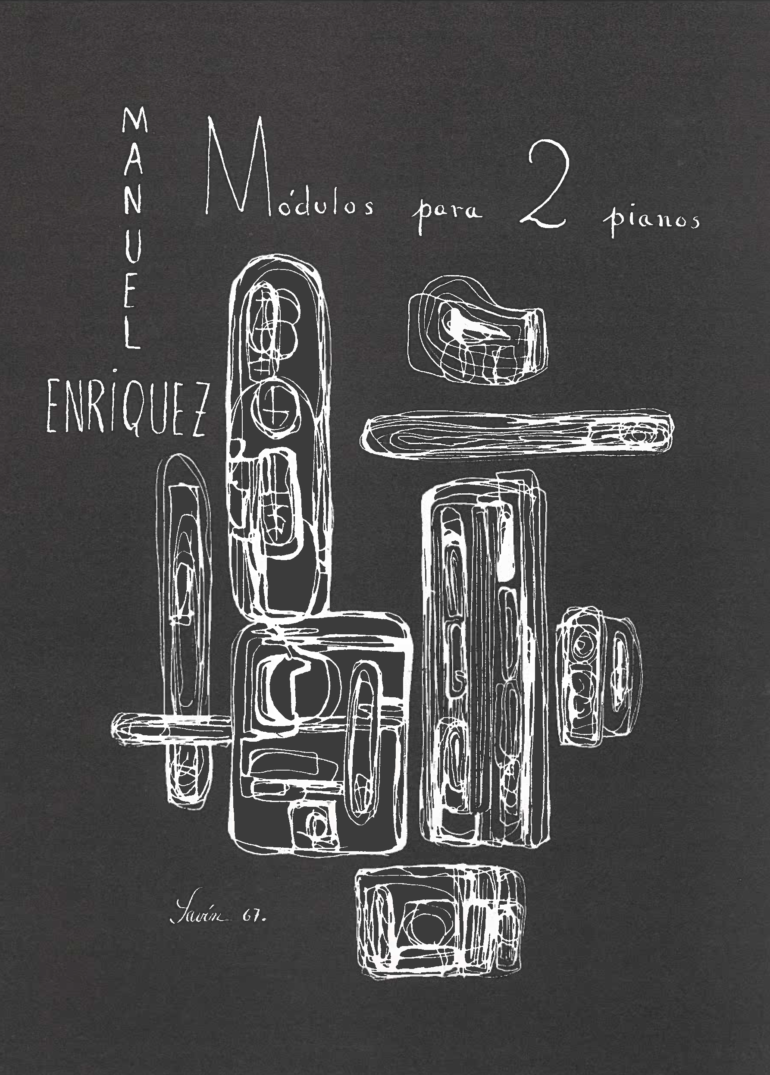 MANUEL
Módulos para 2 pianos
ENRiQUEZ
Savín 67.